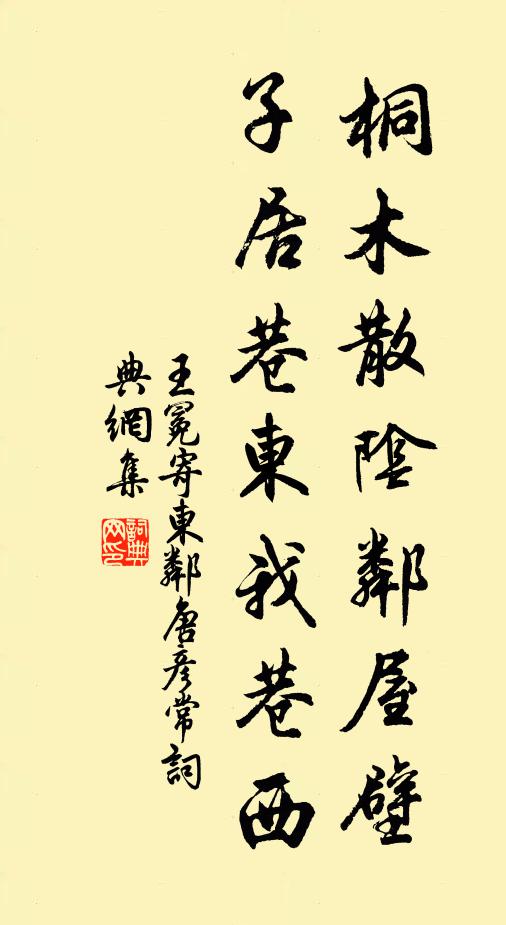 桐木散陰鄰屋壁
子居巷東我巷西
王冕寄東鄰唐彥常詞
典網集
詞典網印